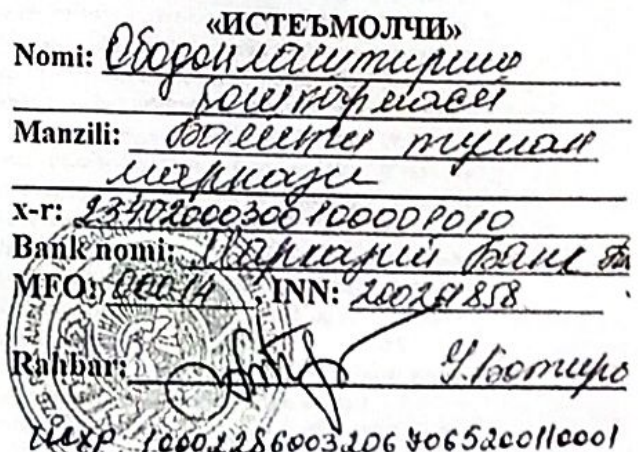 «ИСТЕЪМОЛЧИ»
Nomi: Ободонлаштириш
бошқармаси
Manzili: Балиқчи туман
маркази
x-r: 23402000300100001010
Bank nomi: Марказий Банк
MFO: 00014, INN:
Rahbar: У. Ботиро
ШХР 100022860032067065200110001